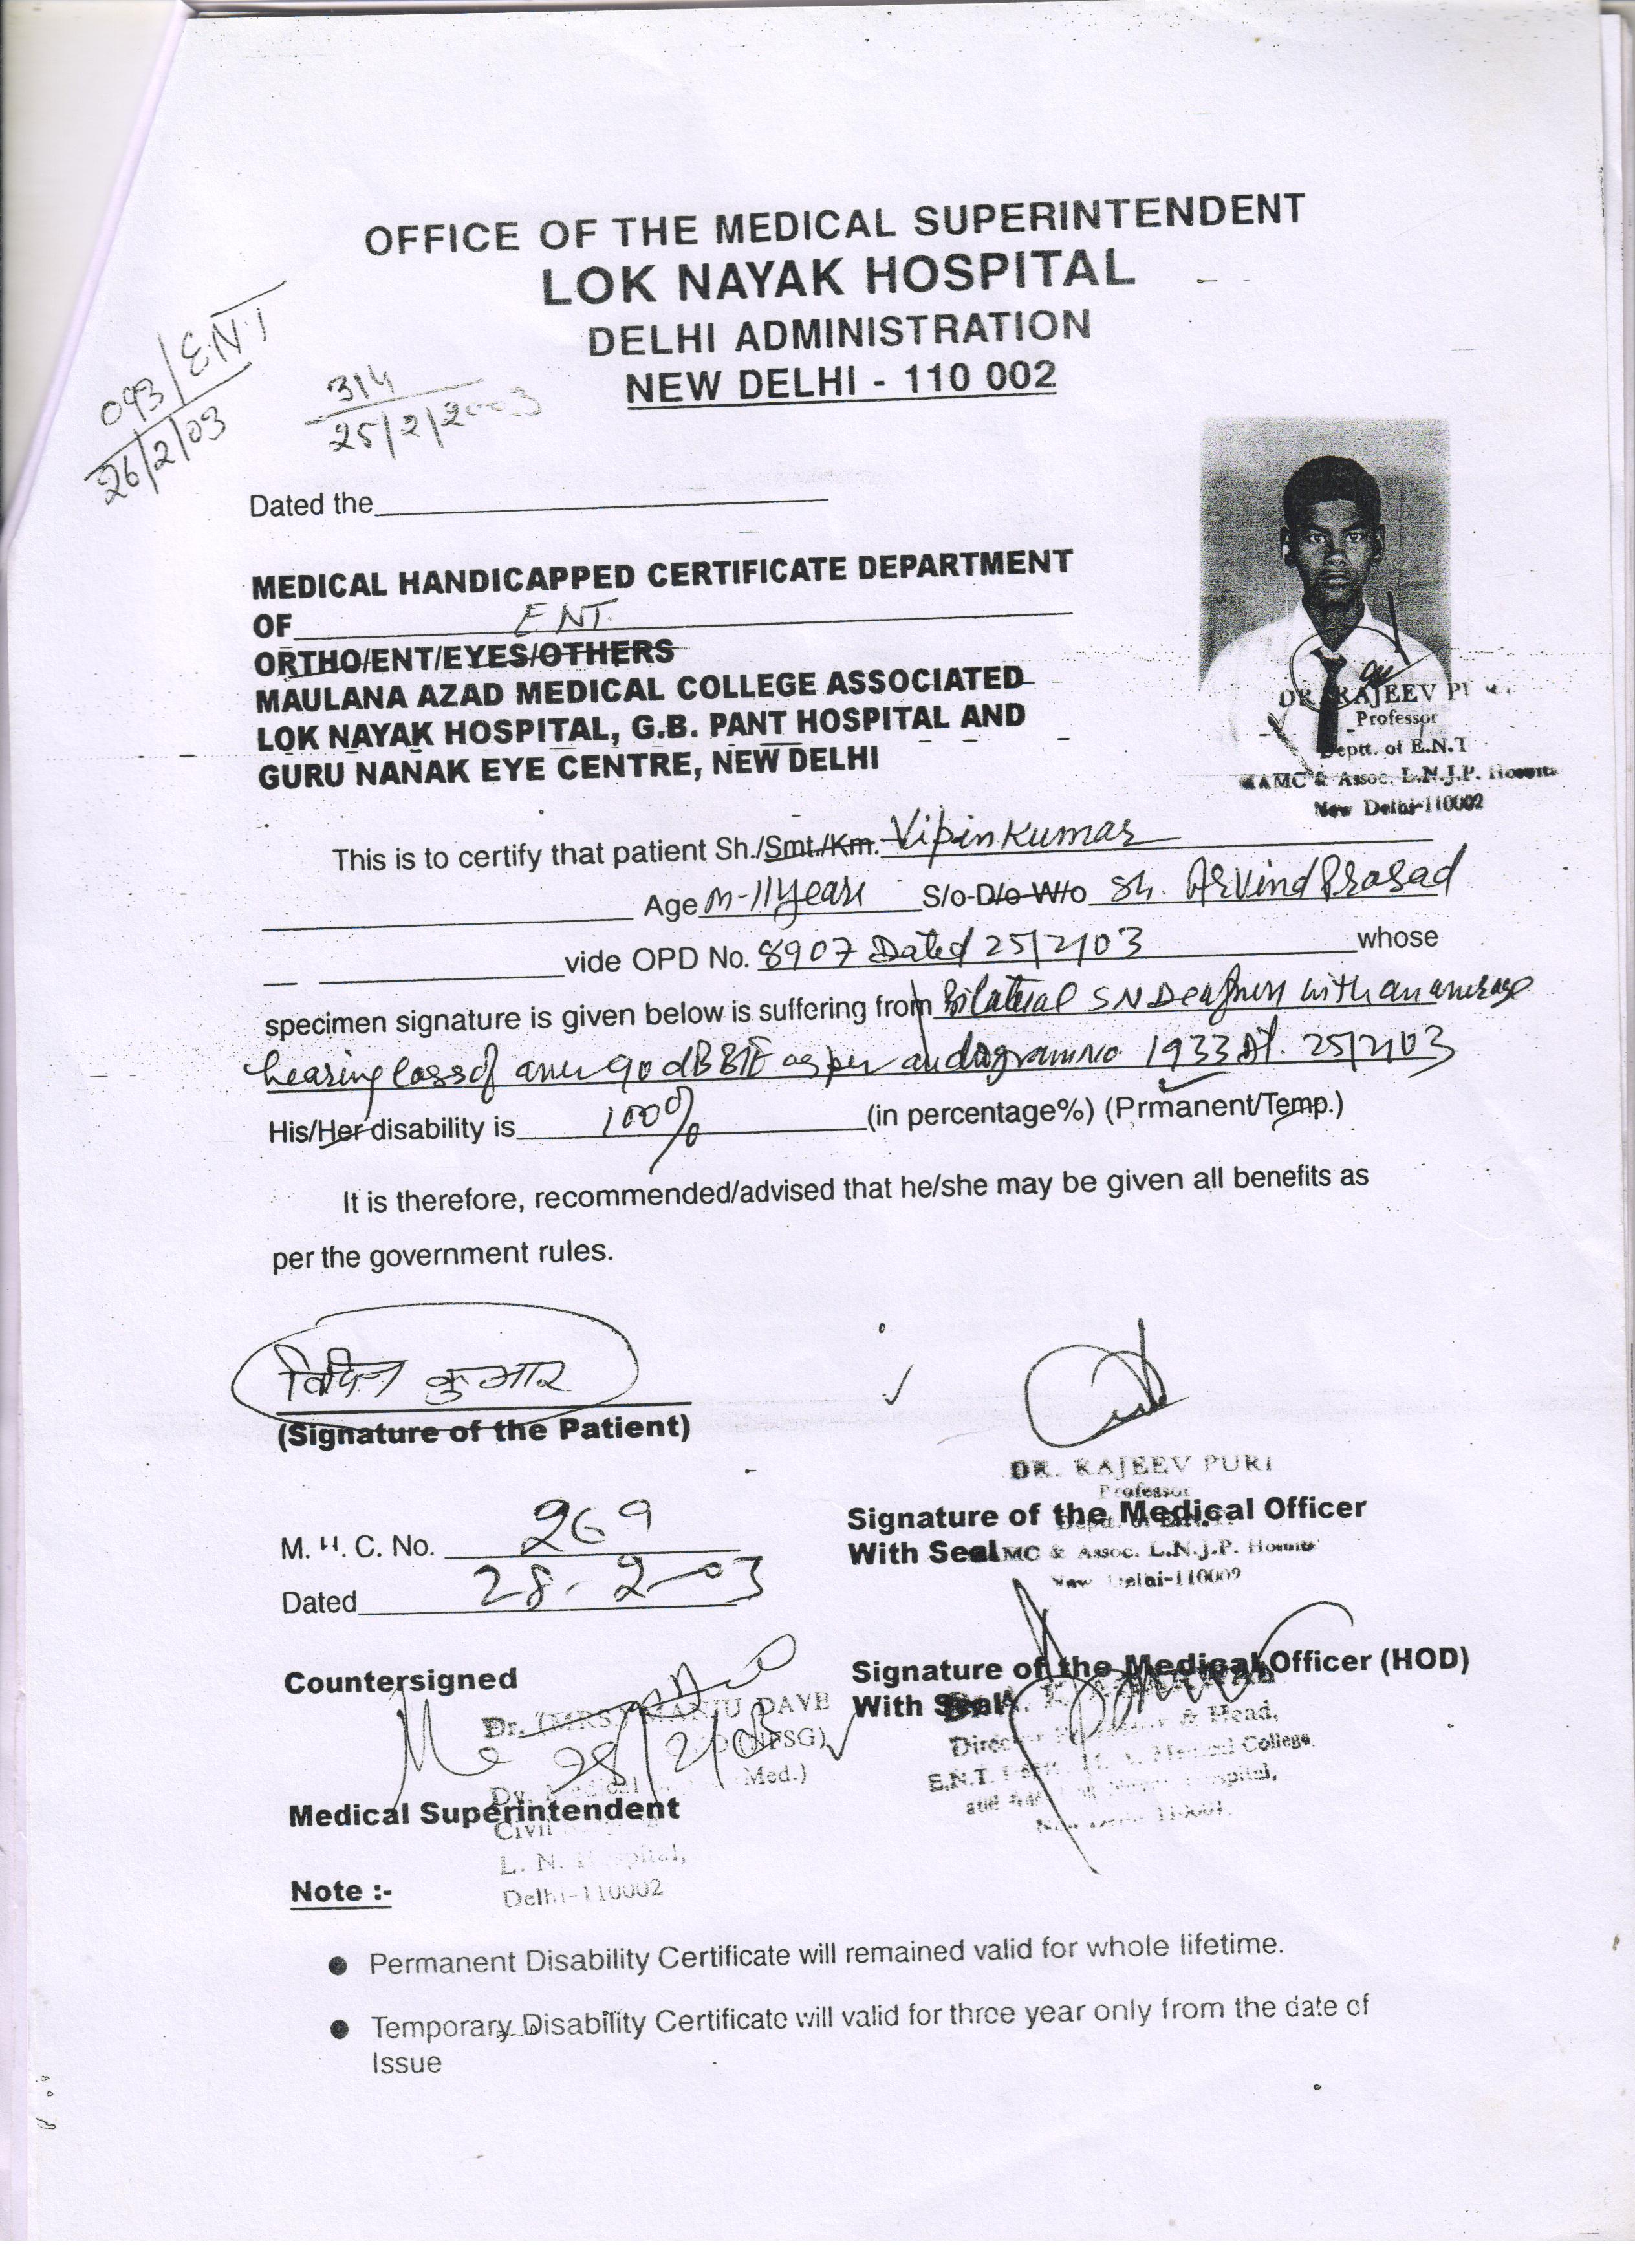 OFFICE OF THE MEDICAL SUPERINTENDENT
LOK NAYAK HOSPITAL
DELHI ADMINISTRATION
NEW DELHI - 110 002
093/ENT
26/2/03
314
25/2/2003
Dated the
MEDICAL HANDICAPPED CERTIFICATE DEPARTMENT
OF ENT.
ORTHO/ENT/EYES/OTHERS
MAULANA AZAD MEDICAL COLLEGE ASSOCIATED
LOK NAYAK HOSPITAL, G.B. PANT HOSPITAL AND
GURU NANAK EYE CENTRE, NEW DELHI
DR. RAJEEV PURI
Professor
Deptt. of E.N.T
MAMC & Assoc. L.N.J.P. Hospital
New Delhi-110002
This is to certify that patient Sh./Smt./Km. Vipin Kumar
Age M-11 years S/o-D/o-W/o Sh. Arvind Prasad
vide OPD No. 8907 Dated 25/2/03 whose
specimen signature is given below is suffering from Bilateral SN Deafness with an average
hearing loss of 90 dB as per audiogram no 1933 Dt. 25/2/03
His/Her disability is 100% (in percentage%) (Prmanent/Temp.)
It is therefore, recommended/advised that he/she may be given all benefits as
per the government rules.
विपिन कुमार
(Signature of the Patient)
DR. RAJEEV PURI
Professor
Signature of the Medical Officer
With Seal
MC & Assoc. L.N.J.P.
New Delhi-110002
M. H. C. No. 269
Dated 28-2-03
Countersigned
Dr. (MRS) MANJU DAVE
28/2/03
Medical Superintendent
L. N. Hospital,
Delhi-110002
Signature of the Medical Officer (HOD)
With Seal
Director & Head,
E.N.T. Medical College
and Hospital,
Note :-
● Permanent Disability Certificate will remained valid for whole lifetime.
● Temporary Disability Certificate will valid for three year only from the date of
Issue